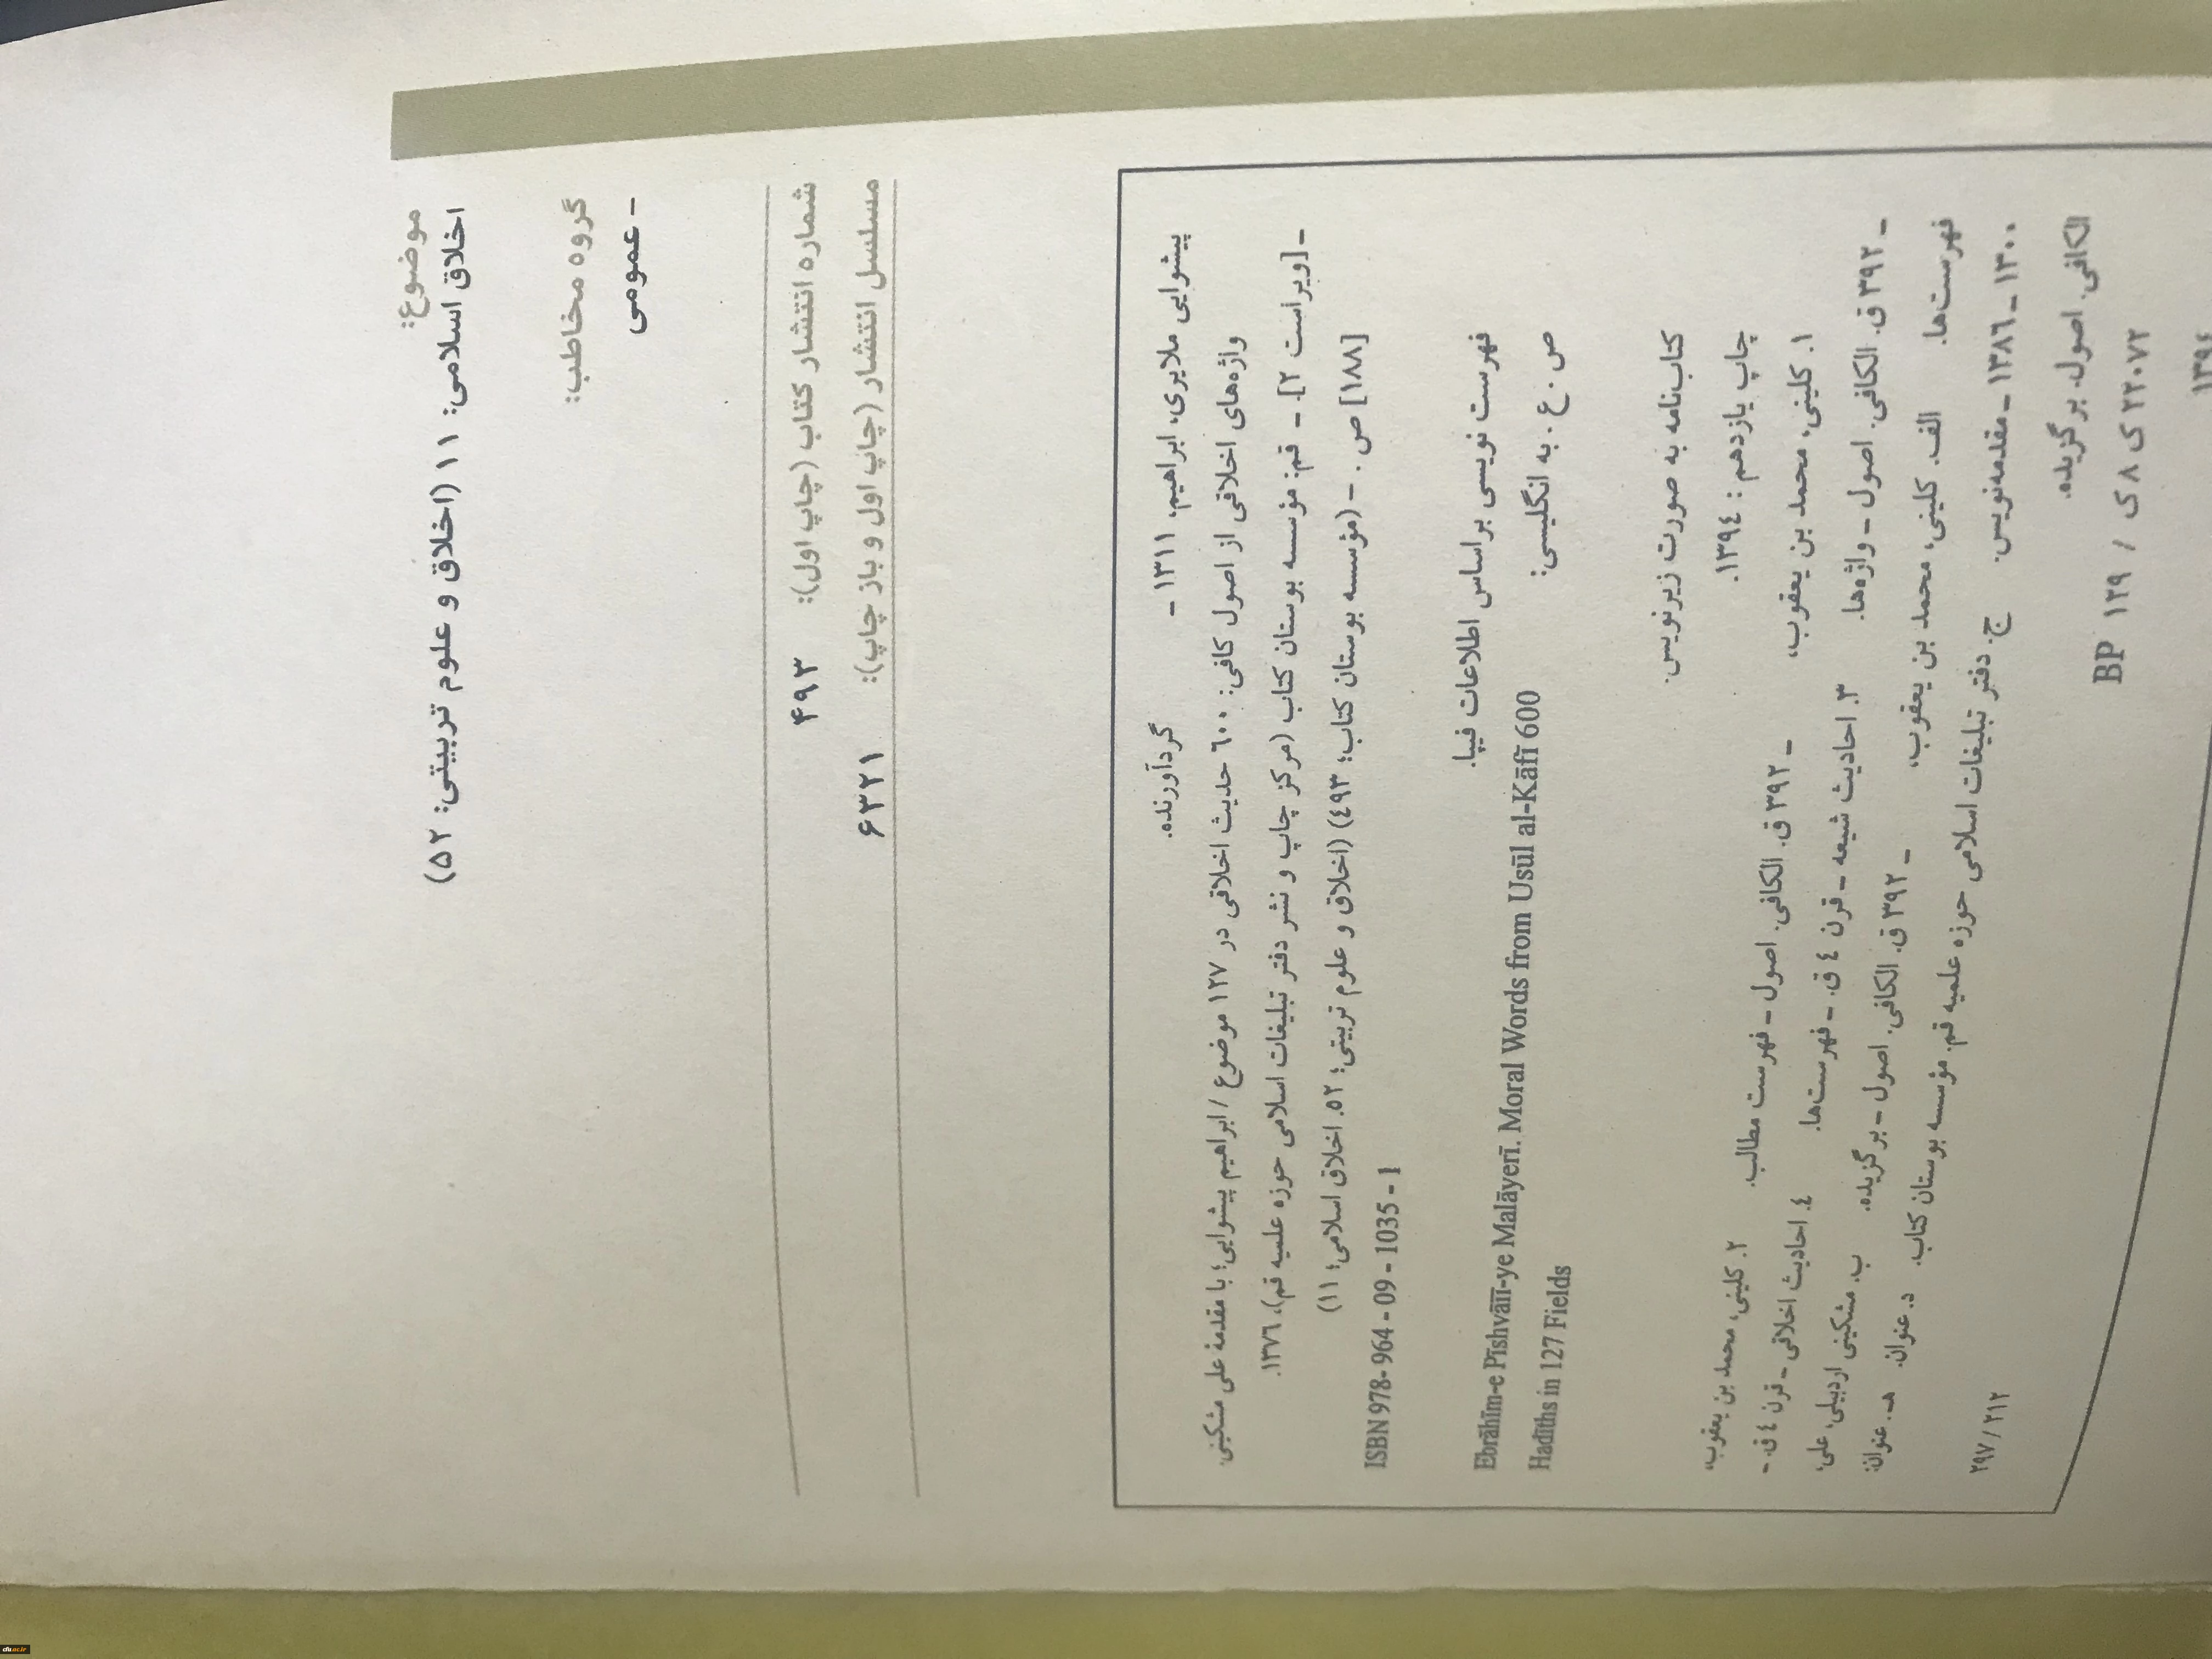 موضوع:
اخلاق اسلامی: ۱۱ (اخلاق و علوم تربیتی: ۵۲)
گروه مخاطب:
- عمومی
شماره انتشار کتاب (چاپ اول): ۴۹۳
مسلسل انتشار (چاپ اول و باز چاپ): ۶۳۲۱
پیشوایی ملایری، ابراهیم، ۱۳۱۱ - گردآورنده.
واژه‌های اخلاقی از اصول کافی: ۶۰۰ حدیث اخلاقی در ۱۲۷ موضوع / ابراهیم پیشوایی؛ با مقدمهٔ علی مشکینی.
- [ویراست ۲]. - قم: مؤسسه بوستان کتاب (مرکز چاپ و نشر دفتر تبلیغات اسلامی حوزه علمیه قم)، ۱۳۷۶.
[۱۸۸] ص. - (مؤسسه بوستان کتاب؛ ۴۹۳) (اخلاق و علوم تربیتی؛ ۵۲. اخلاق اسلامی؛ ۱۱)
ISBN 978- 964 - 09 - 1035 - 1
فهرست نویسی براساس اطلاعات فیپا.
ص. ع. به انگلیسی: Ebrāhīm-e Pīshvāīī-ye Malāyerī. Moral Words from Usūl al-Kāfī 600
Hadīths in 127 Fields
کتاب‌نامه به صورت زیرنویس.
چاپ یازدهم: ۱۳۹٤.
۱. کلینی، محمد بن یعقوب، - ۳۹۲ ق. الکافی. اصول - فهرست مطالب. ۲. کلینی، محمد بن یعقوب،
- ۳۹۲ ق. الکافی. اصول - واژه‌ها. ۳. احادیث شیعه - قرن ٤ ق. - فهرست‌ها. ٤. احادیث اخلاقی - قرن ٤ ق. -
فهرست‌ها. الف. کلینی، محمد بن یعقوب، - ۳۹۲ ق. الکافی. اصول - برگزیده. ب. مشکینی اردبیلی، علی،
۱۳۰۰ - ۱۳۸٦ - مقدمه‌نویس. ج. دفتر تبلیغات اسلامی حوزه علمیه قم. مؤسسه بوستان کتاب. د. عنوان. هـ. عنوان:
الکافی. اصول. برگزیده.
۲۹۷ / ۲۱۲
BP ۱۲۹ / ک ۸ ک ۲۲۰۷۲
۱۳۹٤